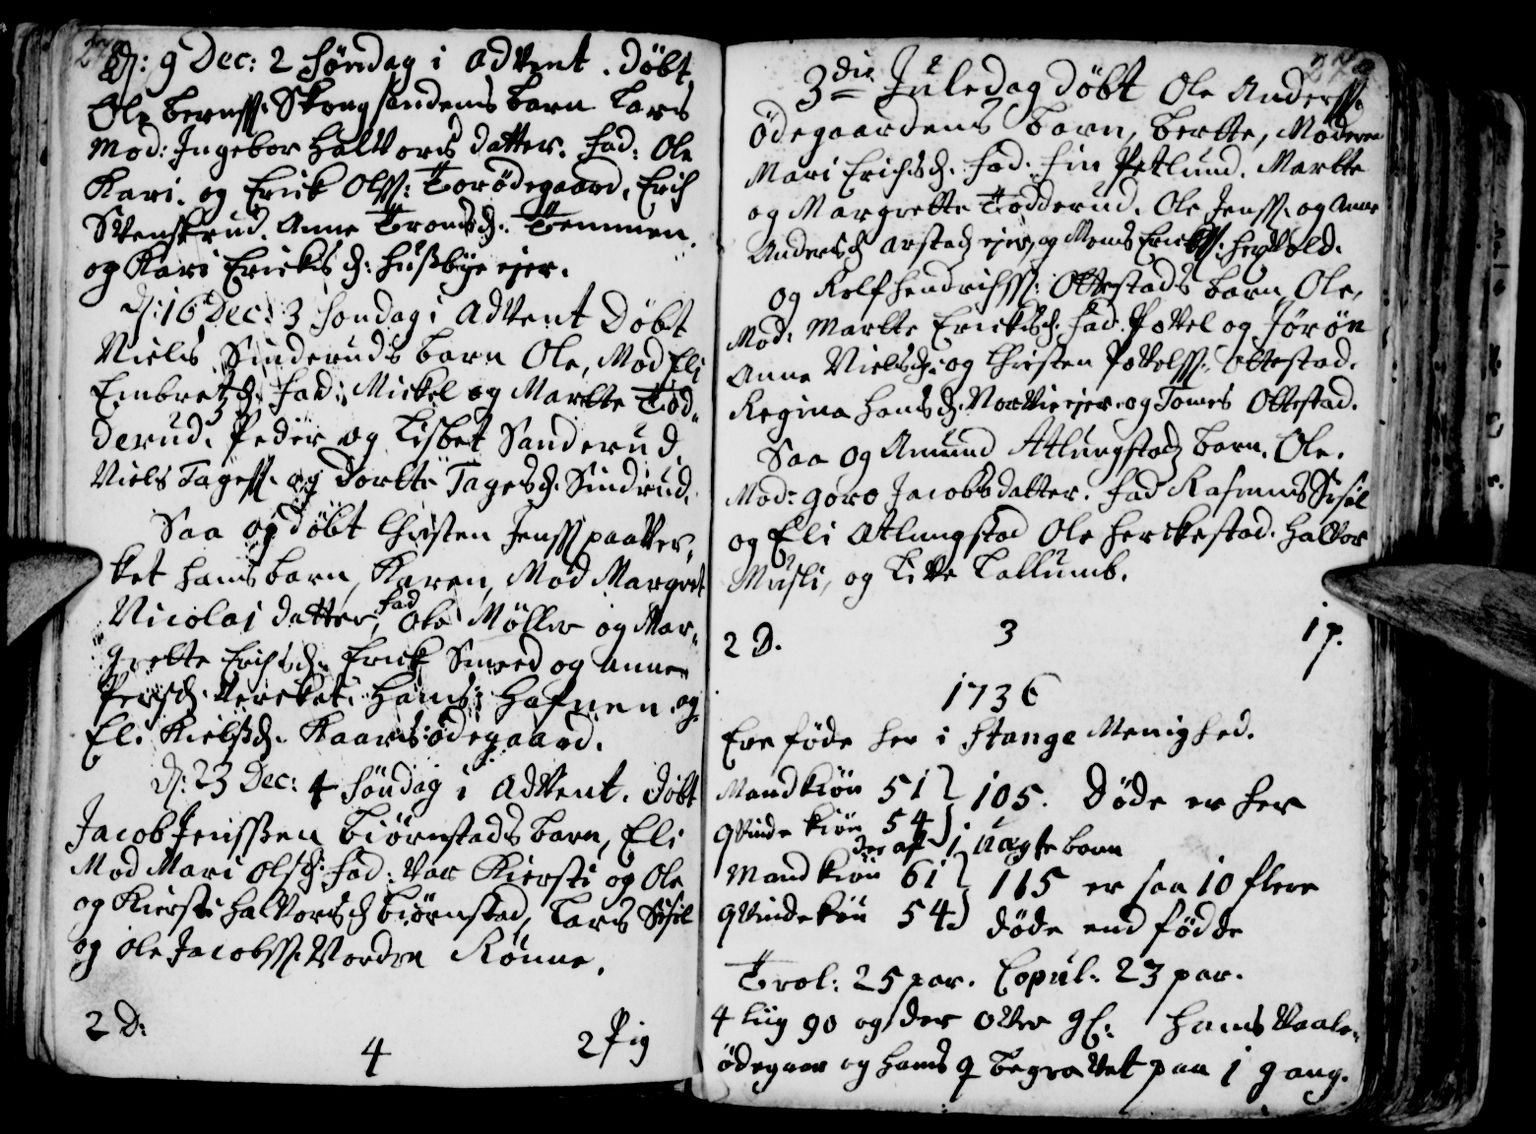 D: 9 Dec: 2 Søndag i Advent. Døbt
Ole Bernss: Skougsandens barn Lars
Mod: Ingebor Halvors datter. Fad: Ole
Kari. og Erick Olss: Torødegaard, Erich
Svenskrud. Anne Tromsd: Temmen.
og Kari Ericksd: Hussbye ejer.
D: 16 Dec: 3 Sondag i Advent Døbt
Niels Sinderuds barn Ole, Mod Eli
Embretzd. Fad: Mickel og Marthe Tod-
derud. Peder og Lisbet Sanderud,
Niels Tagess. og Dorthe Tagesd. Sindrud.
Saa og døbt Christen Jenss paa Ver-
ket hans barn, Karen, Mod Margret
Nicolaj datter, Fad Ole Møller og Mar-
grette Erichsd. Erick Smed og Anne
Persd. Verket. Hans Hafnen og
Eli Kielsd. Kaarsødegaard.
D: 23 Dec: 4 Søndag i Advent. Døbt
Jacob Jenssen Biørnstads barn, Eli
Mod Mari Olsd: Fad: Var Kiersti og Ole
og Kiersti Halvorsd Biørnstad, Lars Sisil
og Ole Jacobss. Vordre Rønne.
2 D:
4
2 Pig
3die Juledag døbt Ole Anderss.
Ødegaardens barn, Berthe, Moderen
Mari Erichsd. Fad. Fin Petlund. Marthe
og Margrethe Tødderud. Ole Jenss. og Anne
Andersd Arstad ejer, og Mons Erickss. Hervold.
og Rolf Hendrichss: Ottestads barn Ole,
Mod: Marthe Ericksd. Fad. Povel og Jørøn
Anne Nielsd: og Christen Povelss: Ottestad.
Regina Hansd. Norvie ejer. og Tomes Ottestad.
Saa og Amund Atlungstad barn. Ole.
Mod: Goro Jacobsdatter. Fad Rasmus Sisil
og Eli Atlungstad Ole Herckestad. Halvor
Musli, og Live Lallumb.
2 D.
3
1 p.
1736
Ere føde her i Stange Menighed.
Mandkiøn 51 } 105. Døde er her
qvinde kiøn 54
der af 1 uægte barn
Mandkiøn 61 } 115 er saa 10 flere
qvindekiøn 54 døde end fødde
Trol: 25 par. Copul: 23 par.
4 Liig 90 og der over gl: Hans Vaale-
ødegaar og hans q begravet paa 1 gang.